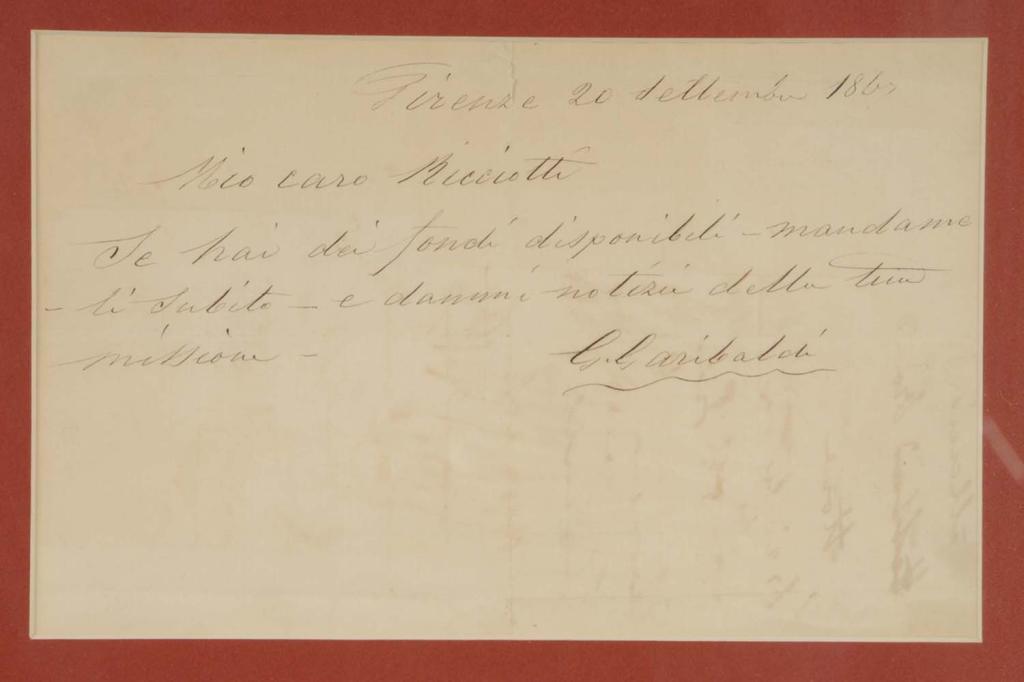 Firenze 20 settembre 1867
Mio caro Ricciotti
Se hai dei fondi disponibili – mandame
– li subito – e dammi notizie della tua
missione –
G. Garibaldi